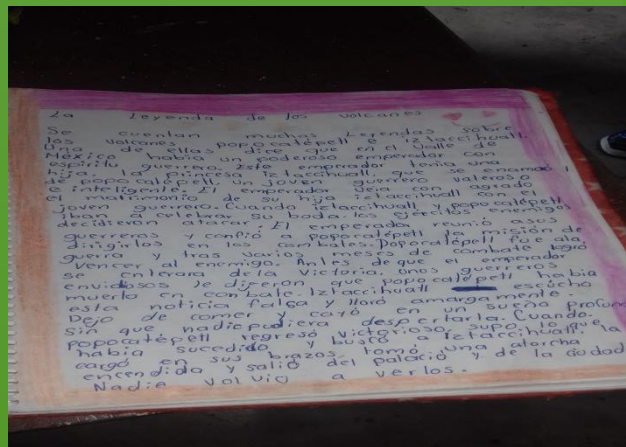 La Leyenda de los volcanes
Se cuentan muchas Leyendas sobre
los volcanes popocatépetl e iztaccihuatl.
Una de ellas dice que en el valle de
México había un poderoso emperador con
espíritu guerrero. Este emperador tenía una
hija, la princesa iztaccihuatl que se enamoró
de popocatépetl, un joven guerrero valeroso
e inteligente. El emperador veía con agrado
el matrimonio de su hija iztaccihuatl con el
joven guerrero. Cuando iztaccihuatl y popocatépetl
iban a celebrar su boda, los ejércitos enemigos
decidieron atacar. El emperador reunió a sus
guerreros y confió a popocatépetl la misión de
dirigirlos en los combates. Popocatépetl fue a la
guerra y tras varios meses de combate logró
vencer al enemigo. Antes de que el emperador
se enterara de la victoria, unos guerreros
envidiosos le dijeron que popocatépetl había
muerto en combate. Iztaccihuatl escuchó
esta noticia falsa y lloró amargamente.
Dejo de comer y cayó en un sueño profundo
Sin que nadie pudiera despertarla. Cuando
popocatépetl regresó victorioso, supo lo que
había sucedido y buscó a iztaccihuatl, la
cargó en sus brazos, tomó una atorcha
encendida y salió del palacio y de la ciudad
Nadie volvió a verlos.